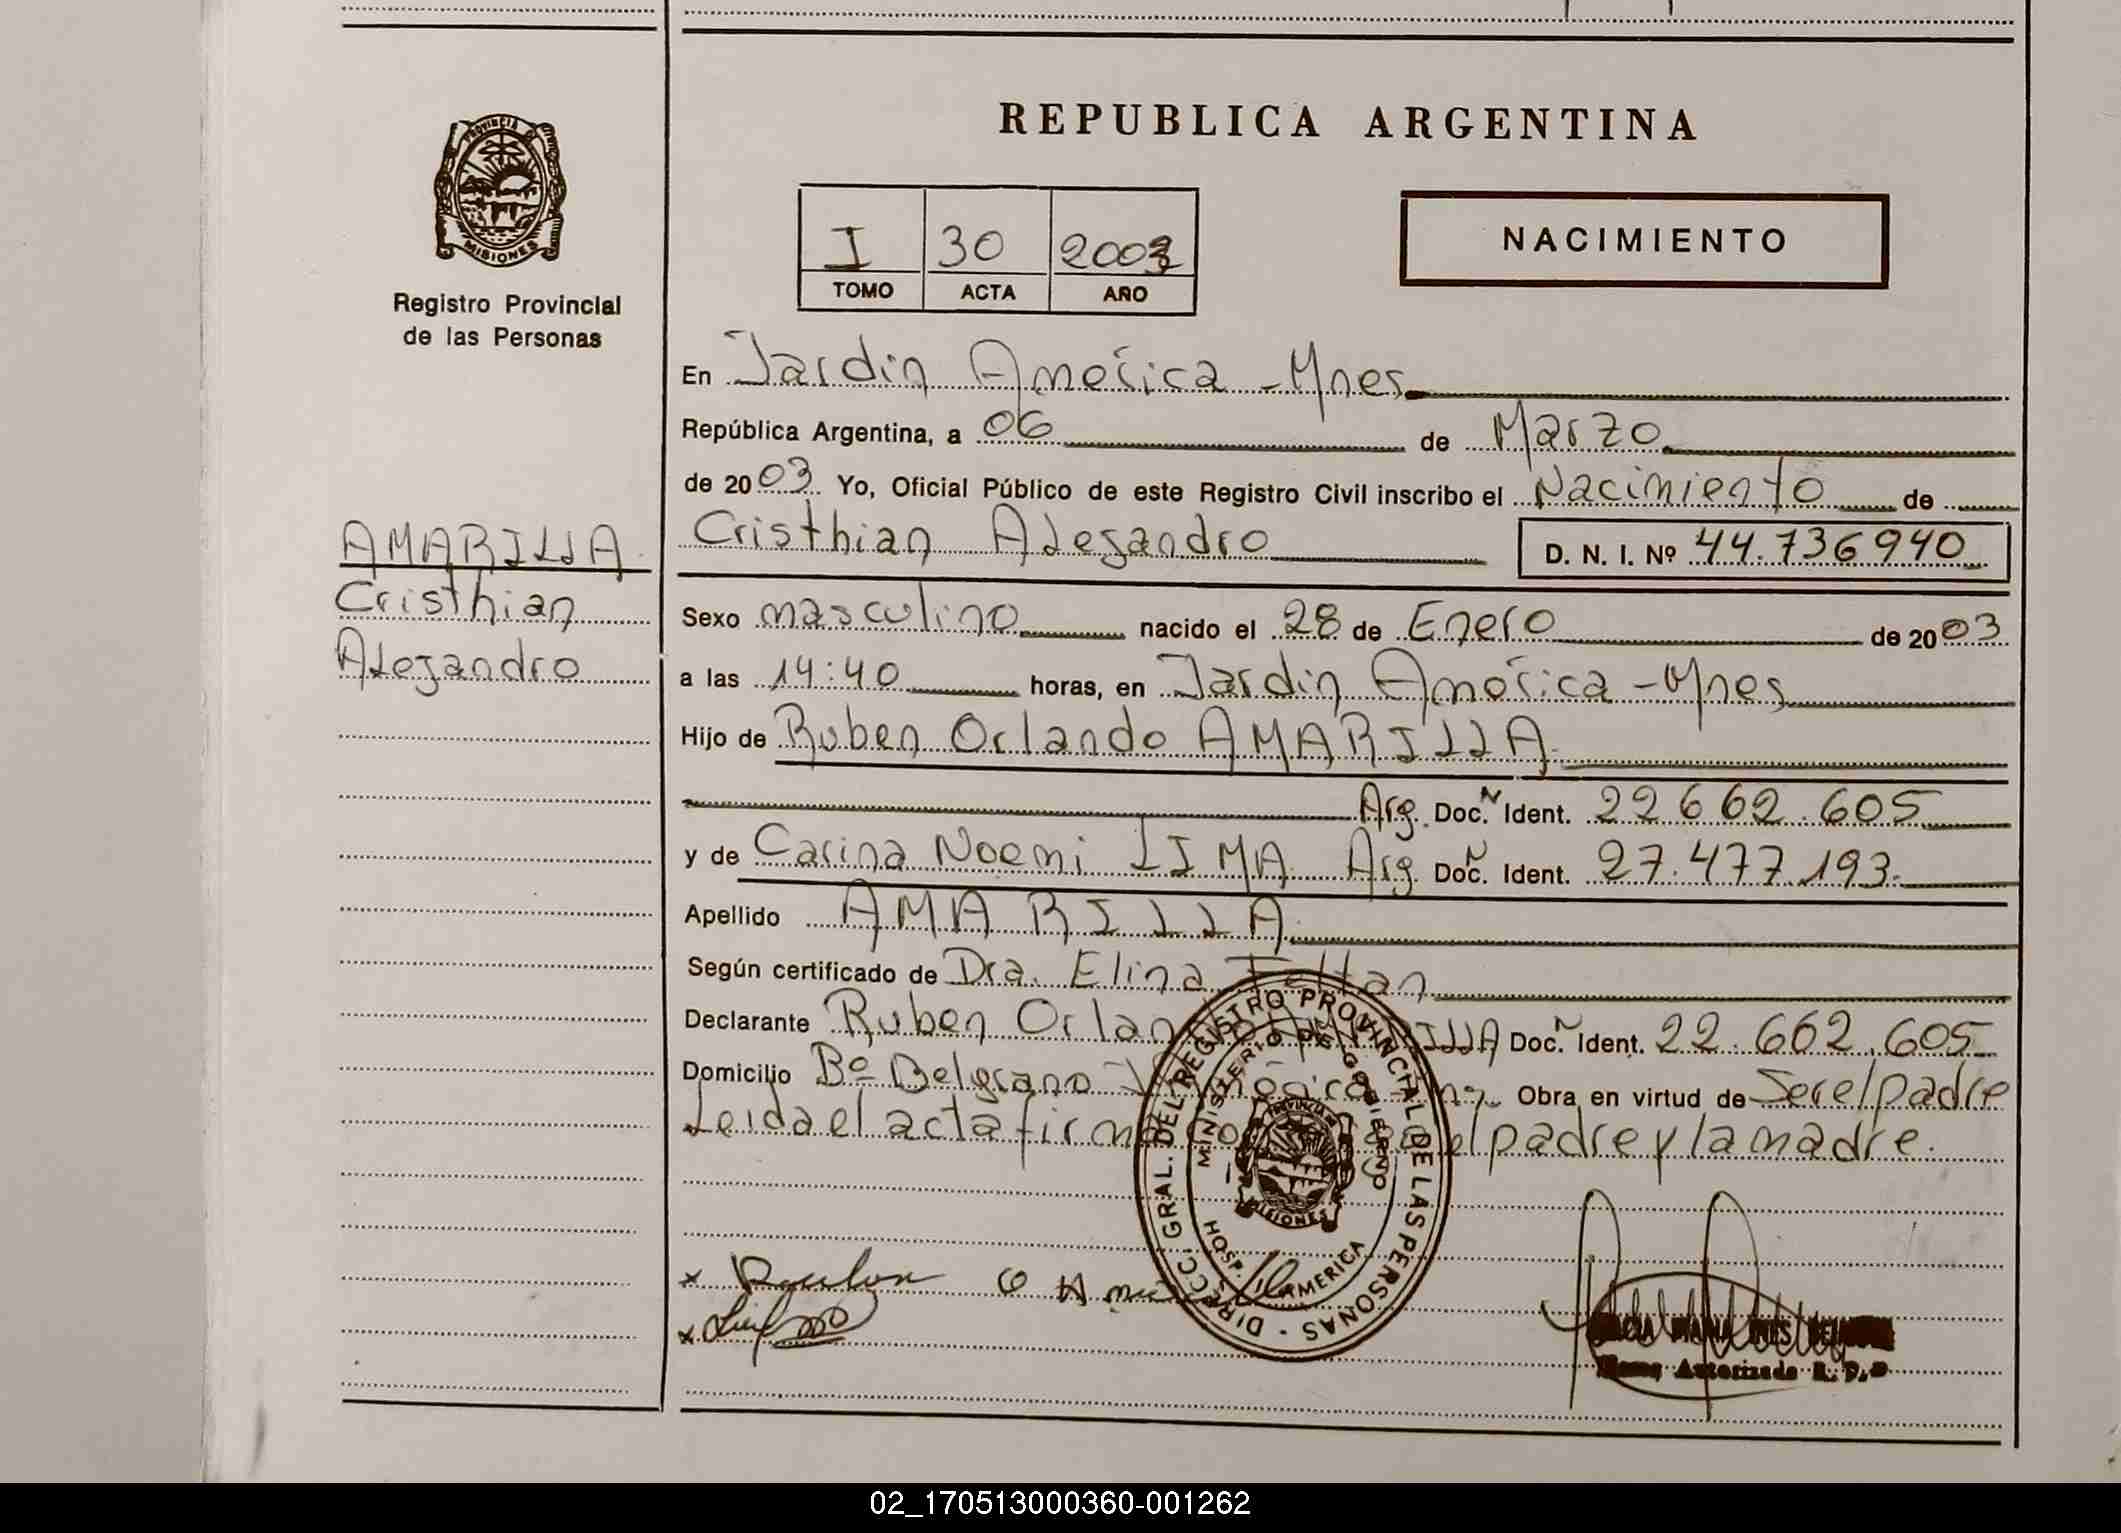 REPUBLICA ARGENTINA
PROVINCIA DE
MISIONES
Registro Provincial
de las Personas
I 30 2003
TOMO ACTA AÑO
NACIMIENTO
En Jardin América - Mnes
República Argentina, a 06 de Marzo
de 2003 Yo, Oficial Público de este Registro Civil inscribo el Nacimiento de
AMARILLA
Cristhian
Alejandro
Cristhian Alejandro D. N. I. Nº 44.736940
Sexo masculino nacido el 28 de Enero de 2003
a las 14:40 horas, en Jardin América - Mnes
Hijo de Ruben Orlando AMARILLA
Arg. Doc. N Ident. 22662.605
y de Carina Noemi LIMA Arg. Doc. N Ident. 27.477.193.
Apellido AMARILLA
Según certificado de Dra. Elina
Declarante Ruben Orlan ILLA Doc. N Ident. 22.662.605
Domicilio Bº Belgrano Obra en virtud de Ser el padre
Leida el acta firm el padre y la madre.
DIRECC. GRAL. DEL REGISTRO PROVINCIAL DE LAS PERSONAS -
MINISTERIO DE GOBIERNO
PROVINCIA DE
MISIONES
HOSP. AMERICA
MARIA INES
Autorizada R. P. P
02_170513000360-001262